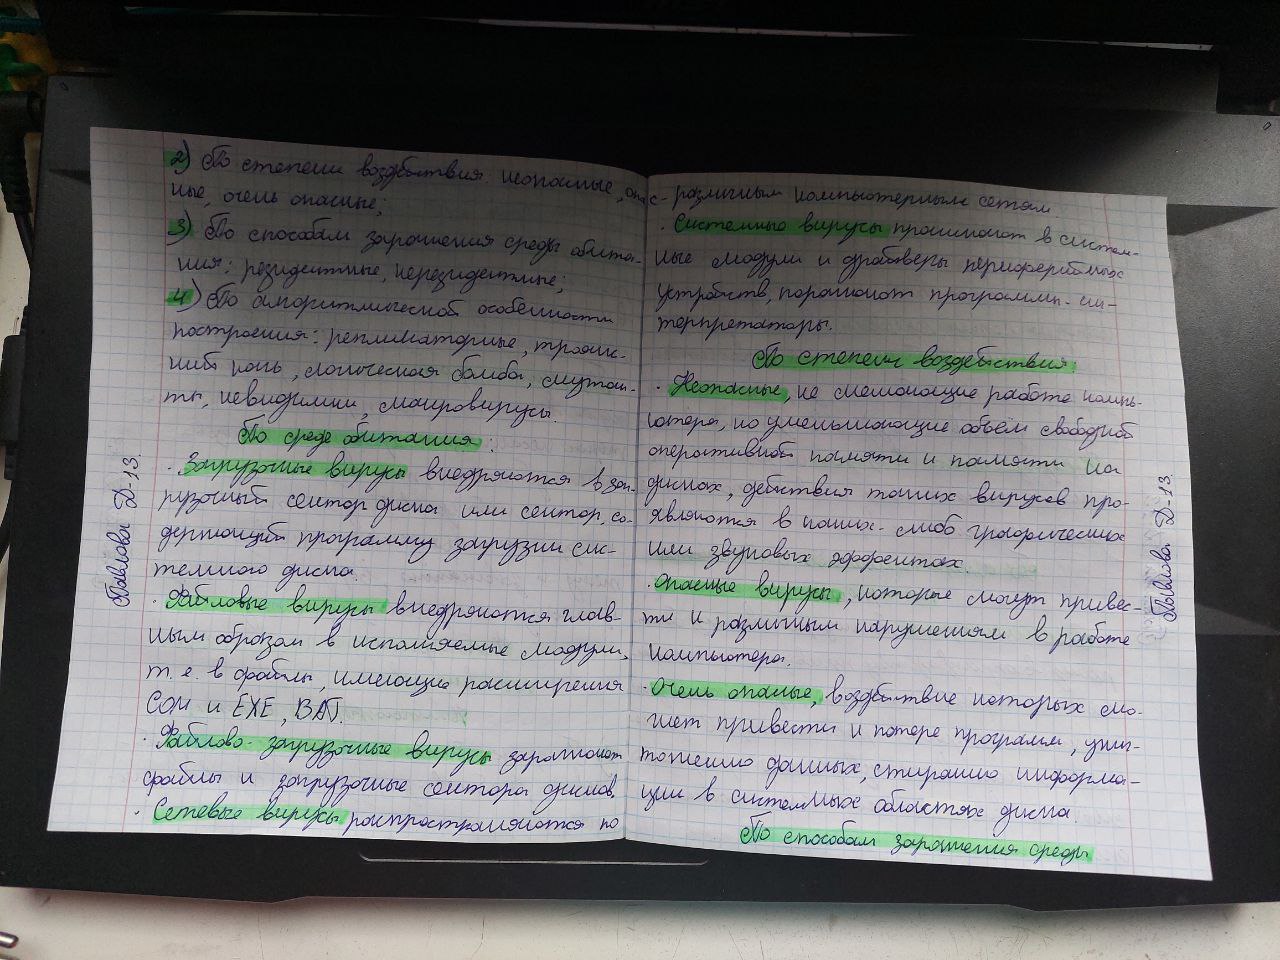 2) По степени воздействия неопасные, опас-
ные, очень опасные;
3) По способам заражения среды обита-
ния: резидентные, нерезидентные;
4) По алгоритмической особенности
построения: репликаторные, троянс-
кий конь, логическая бомба, мутан-
ты, невидимки, макровирусы.
По среде обитания:
· Загрузочные вирусы внедряются в заг-
рузочный сектор диска или сектор, со-
держащий программу загрузки сис-
темного диска.
· Файловые вирусы внедряются глав-
ным образом в исполняемые модули,
т. е. в файлы, имеющие расширения
COM и EXE, BAT.
· Файлово-загрузочные вирусы заражают
файлы и загрузочные сектора дисков.
· Сетевые вирусы распространяются по
Павлова Д-13.
различным компьютерным сетям.
· Системные вирусы проникают в систем-
ные модули и драйверы периферийных
устройств, поражают программы-ин-
терпретаторы.
По степени воздействия
· Неопасные, не мешающие работе компь-
ютера, но уменьшающие объём свободной
оперативной памяти и памяти на
дисках, действия таких вирусов про-
являются в каких-либо графических
или звуковых эффектах.
· Опасные вирусы, которые могут привес-
ти к различным нарушениям в работе
компьютера.
· Очень опасные, воздействие которых мо-
жет привести к потере программ, унич-
тожению данных, стиранию информа-
ции в системных областях диска.
По способам заражения среды
Павлова Д-13